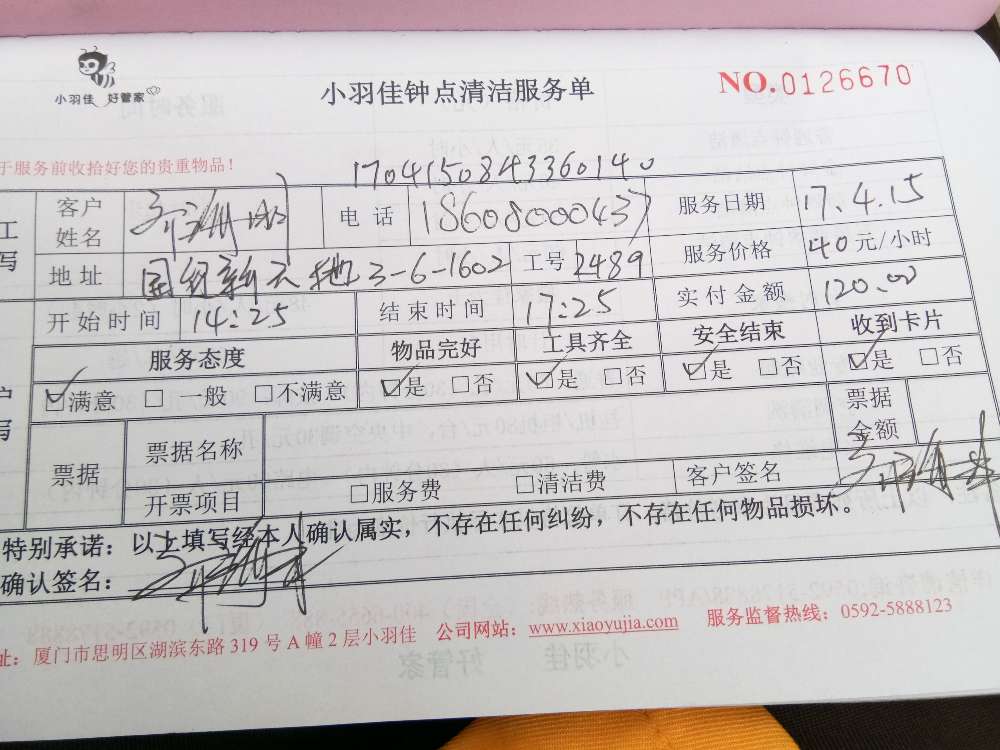 小羽佳 好管家
小羽佳钟点清洁服务单
NO.0126670
于服务前收拾好您的贵重物品！
17041508433601 40
工 客户姓名 电话 18608000437 服务日期 17.4.15
写 地址 国经新天地3-6-1602 工号 2489 服务价格 40元/小时
开始时间 14:25 结束时间 17:25 实付金额 120.00
服务态度 物品完好 工具齐全 安全结束 收到卡片
户 ☑满意 □一般 □不满意 ☑是 □否 ☑是 □否 ☑是 □否 ☑是 □否
写 票据 票据名称 票据金额
开票项目 □服务费 □清洁费 客户签名
特别承诺：以上填写经本人确认属实，不存在任何纠纷，不存在任何物品损坏。
确认签名：
址：厦门市思明区湖滨东路319号A幢2层小羽佳 公司网站：www.xiaoyujia.com 服务监督热线：0592-5888123